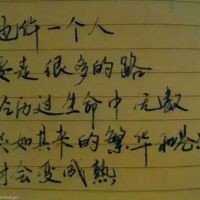 也许一个人
要走很多的路
经历过生命中无数
突如其来的繁华和苍
才会变成熟